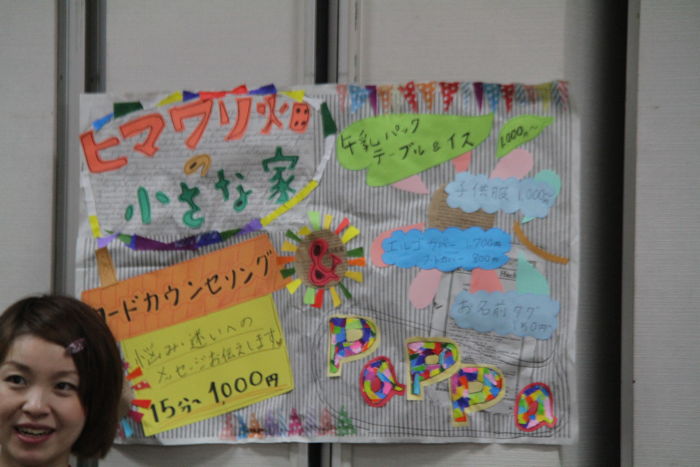 ヒマワリ畑
の
小さな家
牛乳パック
テーブル&イス
1000円〜
子供服 1,000円〜
エルゴカバー 1,700円
フードカバー 800円
お名前タグ
150円
&
ードカウンセリング
悩み・迷いへの
メッセージお伝えします
15分〜1,000円
PaPPa